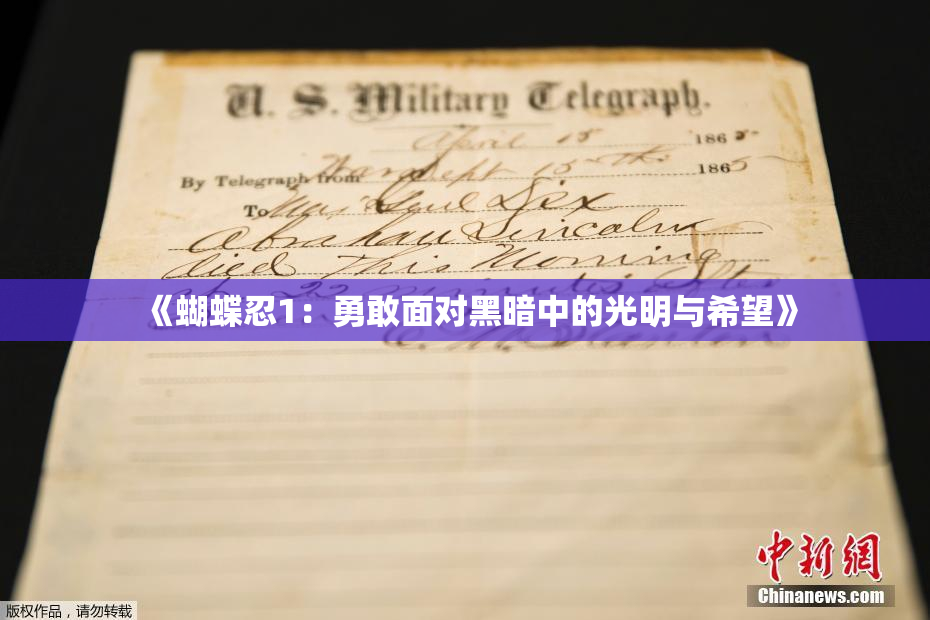 U. S. Military Telegraph.
April 15 1865
By Telegraph from War Dept 15th 1865
To Maj Genl Dix
Abraham Lincoln
died This Morning
at 22 minutes after
《蝴蝶忍1：勇敢面对黑暗中的光明与希望》
E. M. Stanton
中新網
Chinanews.com
版权作品，请勿转载